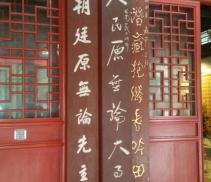 潛藏抱膝長吟田
人民原無論大事
朝廷原無論先主